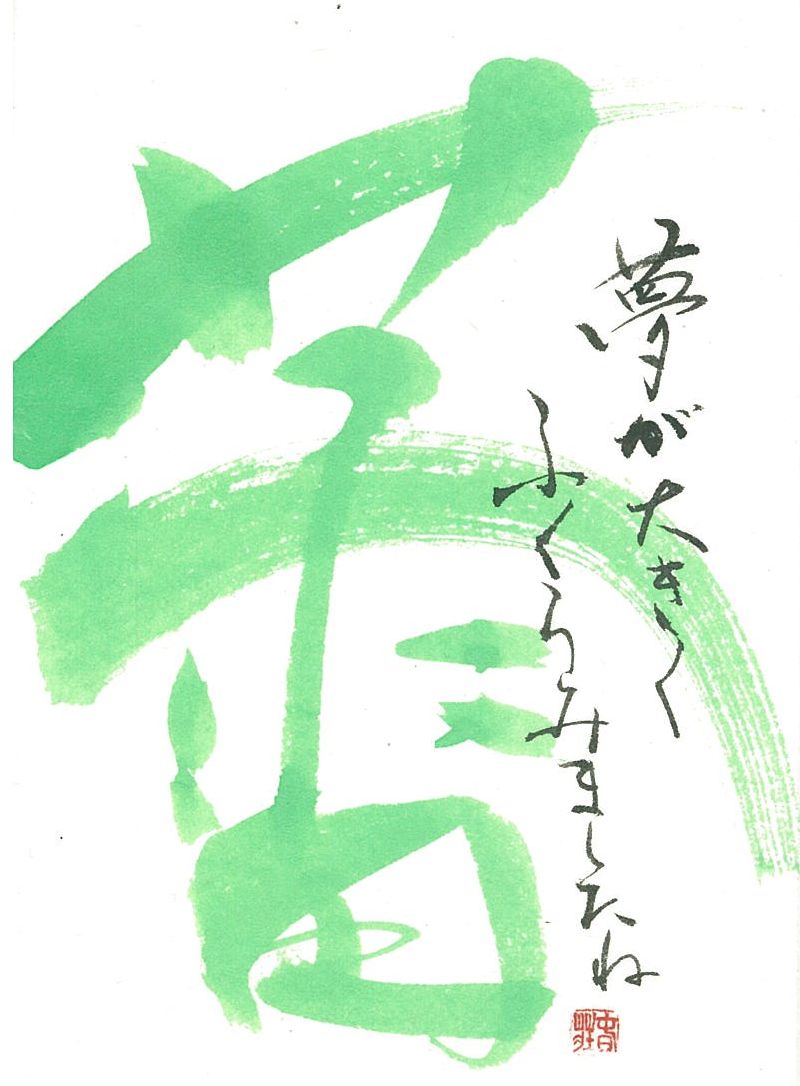 夢が大きく
ふくらみましたね
蕾